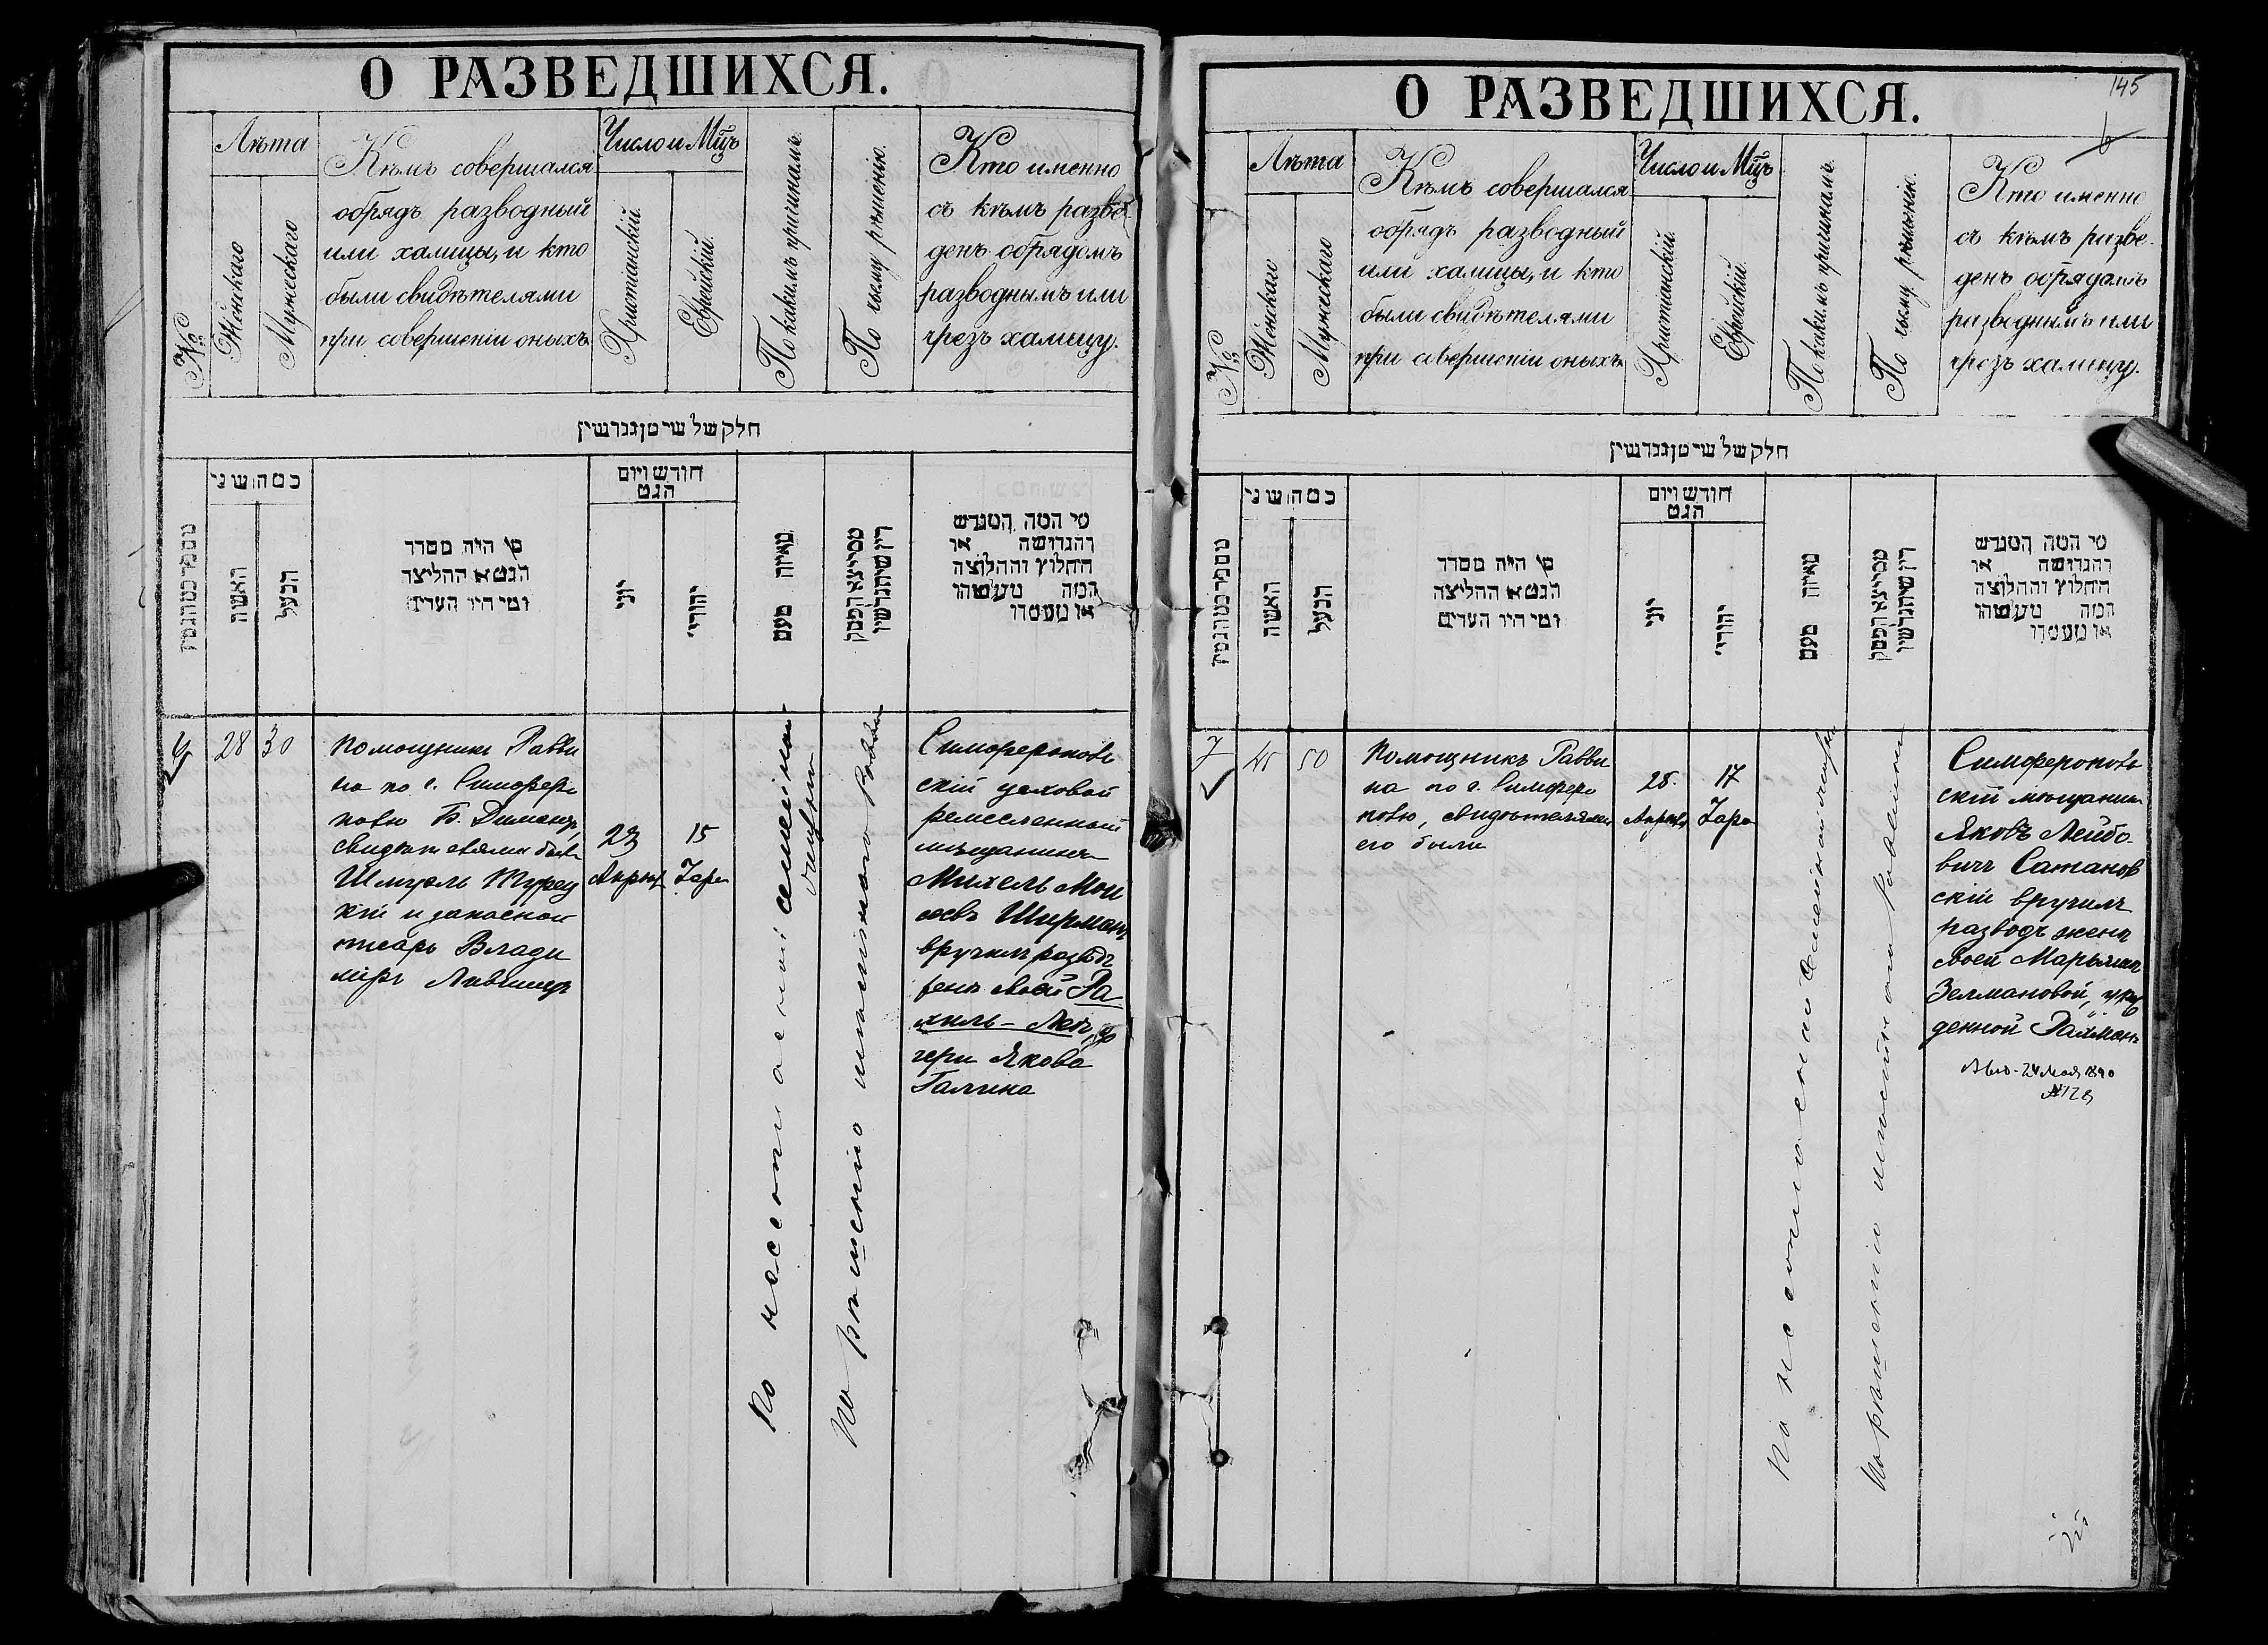 О РАЗВЕДШИХСЯ.
№
Лѣта
Женскаго
Мужескаго
Кѣмъ совершался
обрядъ разводный
или халицы, и кто
были свидѣтелями
при совершеніи оныхъ.
Число и Мцъ
Христіанскій.
Еврейскій.
По какимъ причинамъ.
По чьему рѣшенію.
Кто именно
съ кѣмъ разве-
денъ обрядомъ
разводнымъ или
чрезъ халицу.
חלק של
כמה שני
האשה
הבעל
מי היה מסדר
הגט או החליצה
ומי היו העדים
חודש ויום
הגט
יוני
יהודי
מאיזה טעם
מי המה המגרש
והגרושה או
החלוץ והחלוצה
המה
28
30
Помощникъ Равви
на по г. Симферо
полю Б. Димантъ,
свидѣтелями были
Шмуэль Турец
кій и запасной
писарь Влади
міръ Лившицъ
23
Апрѣл
15
Іара
По несогласной семейной
жизни
По рѣшенію мѣстнаго Раввина
Симферополь
скій цеховой
ремесленный
мѣщанинъ
Михель Мои
сеевъ Ширманъ
вручилъ разводъ
женѣ своей Ра
хиль-Леѣ, до
чери Якова
Галкина
О РАЗВЕДШИХСЯ.
145
№
Лѣта
Женскаго
Мужескаго
Кѣмъ совершался
обрядъ разводный
или халицы, и кто
были свидѣтелями
при совершеніи оныхъ.
Число и Мцъ
Христіанскій.
Еврейскій.
По какимъ причинамъ.
По чьему рѣшенію.
Кто именно
съ кѣмъ разве-
денъ обрядомъ
разводнымъ или
чрезъ халицу.
חלק של
כמה שני
האשה
הבעל
מי היה מסדר
הגט או החליצה
ומי היו העדים
חודש ויום
הגט
יוני
יהודי
מאיזה טעם
מי המה המגרש
והגרושה או
החלוץ והחלוצה
המה
7
45
50
Помощникъ Равви
на по г. Симферо
полю, свидѣтелями
его были
25
Апрѣля
17
Іара
По несогласной семейной жизни
По рѣшенію мѣстнаго Раввина
Симферополь
скій мѣщанинъ
Яковъ Лейбо-
вичъ Сатанов
скій вручилъ
разводъ женѣ
своей Марьямъ
Зелмановой, урож
денной Рахманъ
24 Мая 1890